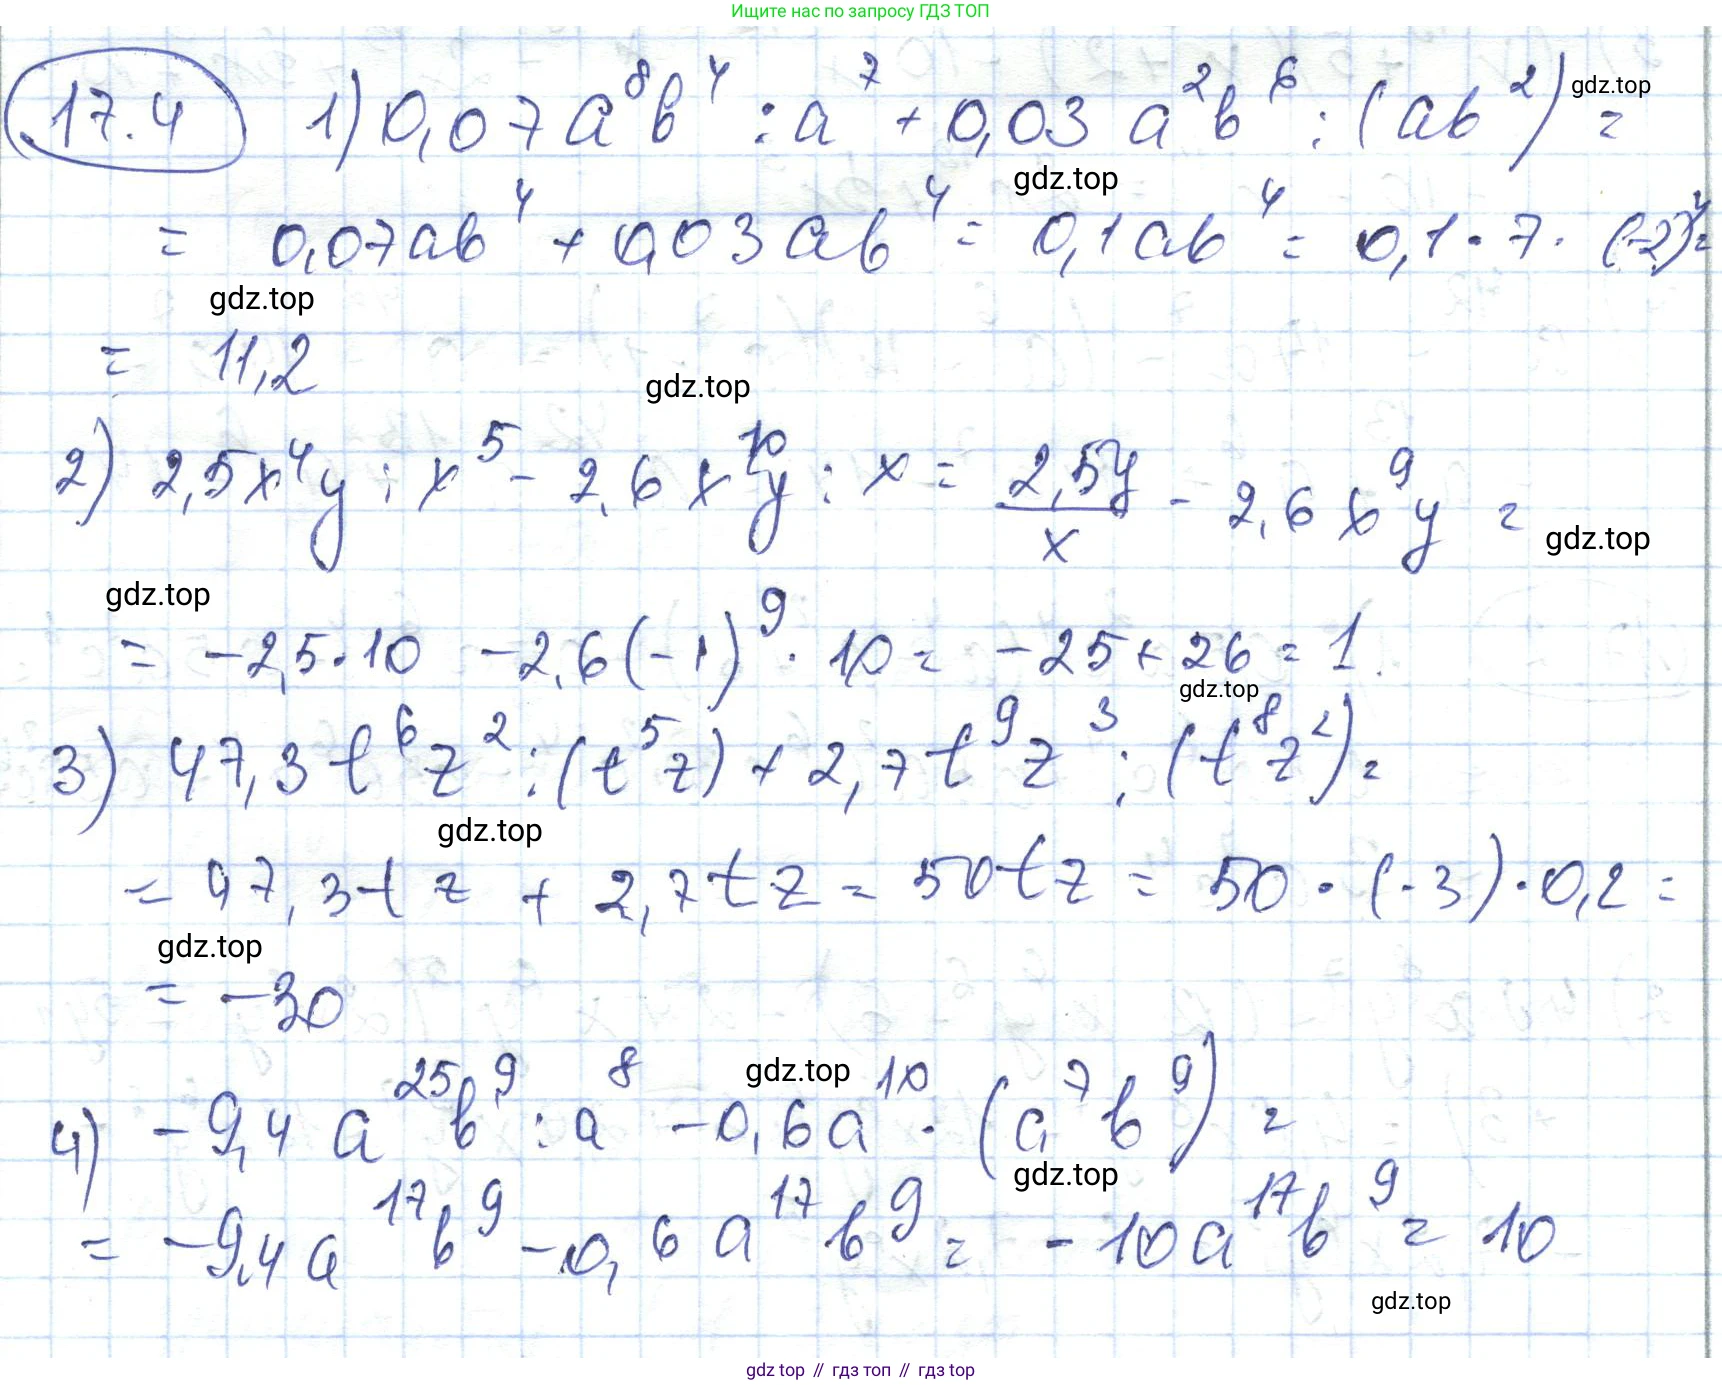 Ищите нас по запросу ГДЗ ТОП
17.4 1) 0,07a⁸b⁴ : a⁷ + 0,03 a²b⁶ : (ab²) = gdz.top
gdz.top
= 0,07ab⁴ + 0,03ab⁴ = 0,1ab⁴ = 0,1 · 7 · (-2)⁴ =
gdz.top
= 11,2
gdz.top
2) 2,5x⁴y : x⁵ - 2,6x¹⁰y : x = 2,5y/x - 2,6x⁹y =
gdz.top
gdz.top
= -2,5·10 - 2,6(-1)⁹ · 10 = -25 + 26 = 1.
gdz.top
3) 47,3t⁶z² : (t⁵z) + 2,7t⁹z³ : (t⁸z²) =
gdz.top
= 47,3tz + 2,7tz = 50tz = 50 · (-3) · 0,2 =
gdz.top
= -30
gdz.top
4) -9,4a²⁵b⁹ : a⁸ - 0,6a¹⁰ · (a⁷b⁹) =
gdz.top
= -9,4a¹⁷b⁹ - 0,6a¹⁷b⁹ = -10a¹⁷b⁹ = 10
gdz.top
gdz top // гдз топ // gdz top